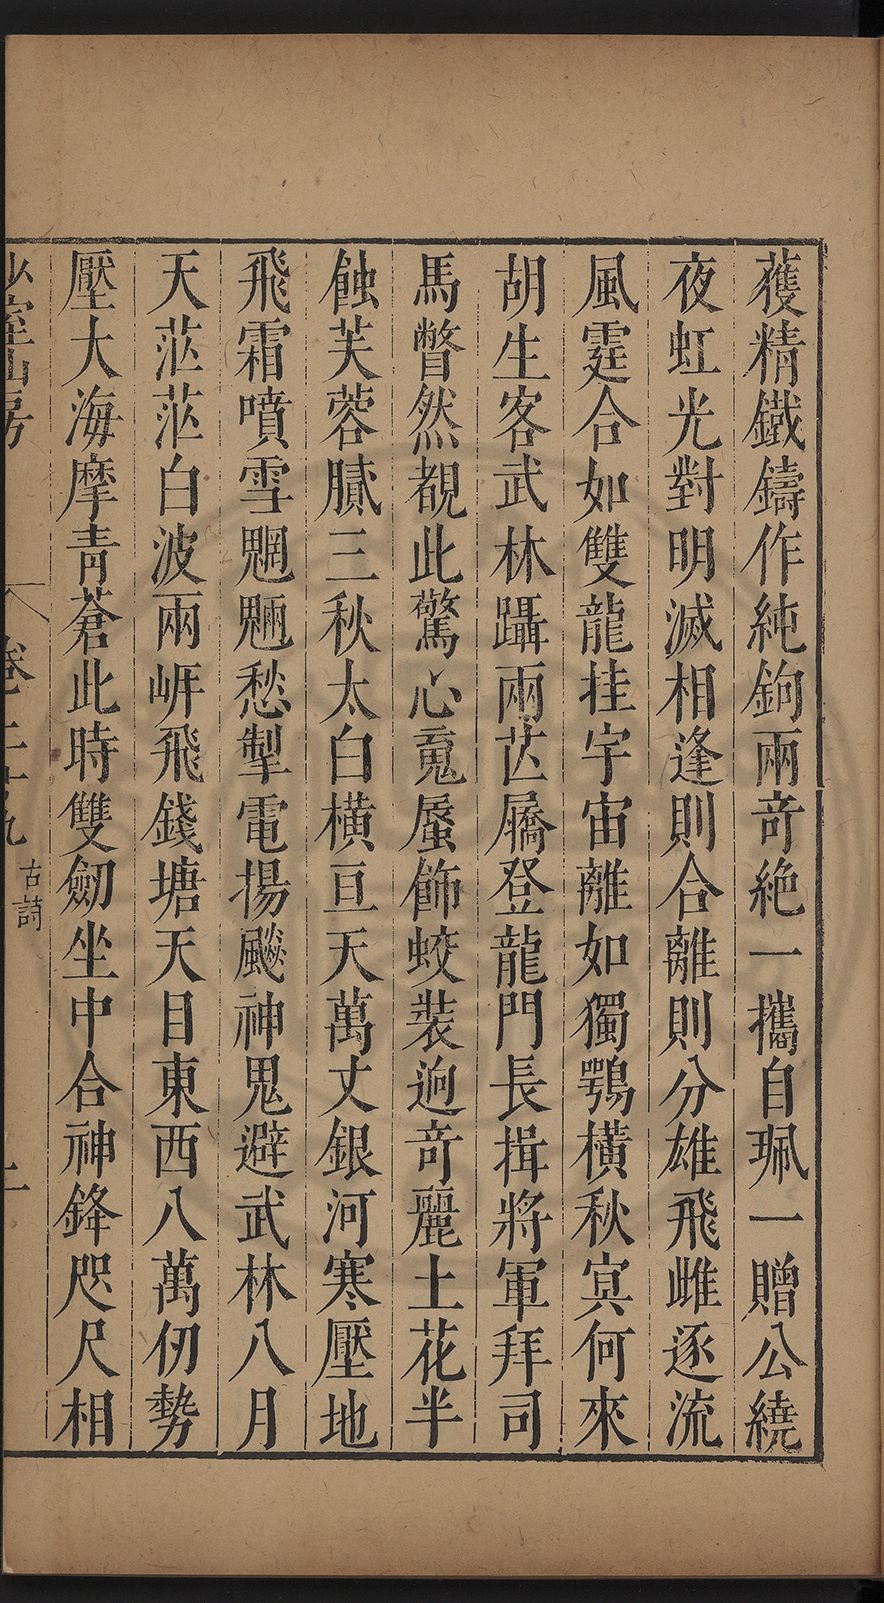 獲精鐵鑄作純鉤兩奇絕一攜自珮一贈公繞
夜虹光對明滅相逢則合離則分雄飛雌逐流
風霆合如雙龍挂宇宙離如獨鶚橫秋冥何來
胡生客武林躡兩芒屩登龍門長揖將軍拜司
馬瞥然覩此驚心䰟蜃飾蛟裝逈奇麗土花半
蝕芙蓉膩三秋太白橫亘天萬丈銀河寒壓地
飛霜噴雪魍魎愁掣電揚飈神鬼避武林八月
天茫茫白波兩崕飛錢塘天目東西八萬仞勢
壓大海摩青蒼此時雙劒坐中合神鋒咫尺相
少室山房
卷二十九
古詩
二